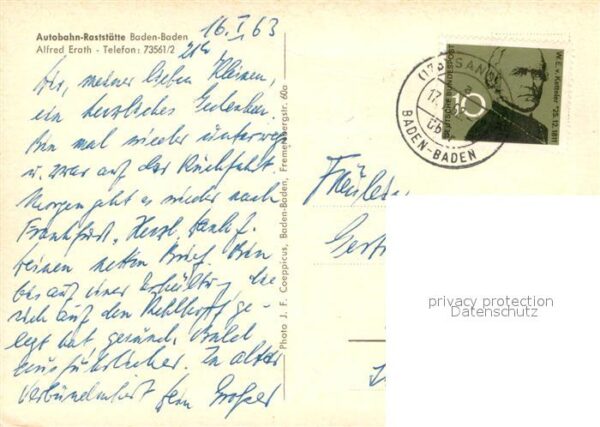 Autobahn-Raststätte Baden-Baden
Alfred Erath - Telefon: 73561/2
16. I 63
21h
Dir, meiner lieben Kleinen,
ein herzliches Gedenken.
Bin mal wieder unterwegs
u. zwar auf der Rückfahrt.
Morgen geht es wieder nach
Frankfurt. Herzl. Dank f.
Deinen netten Brief. Bin
bis auf einer Erkältung, die
sich auf den Kehlkopf ge-
legt hat, gesund. Bald
ausführlicher. In alter
Verbundenheit Dein Großer
Photo J. F. Coeppicus, Baden-Baden, Fremersbergstr. 60a
Fräulein
Gert
BADEN-BADEN
17.
DEUTSCHE BUNDESPOST
10
W. E. v. Ketteler *25.12.1811
privacy protection
Datenschutz